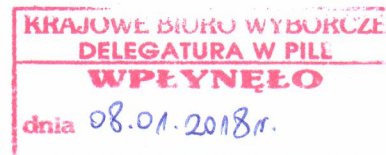 KRAJOWE BIURO WYBORCZE
DELEGATURA W PILE
WPŁYNĘŁO
dnia 08.01.2018r.